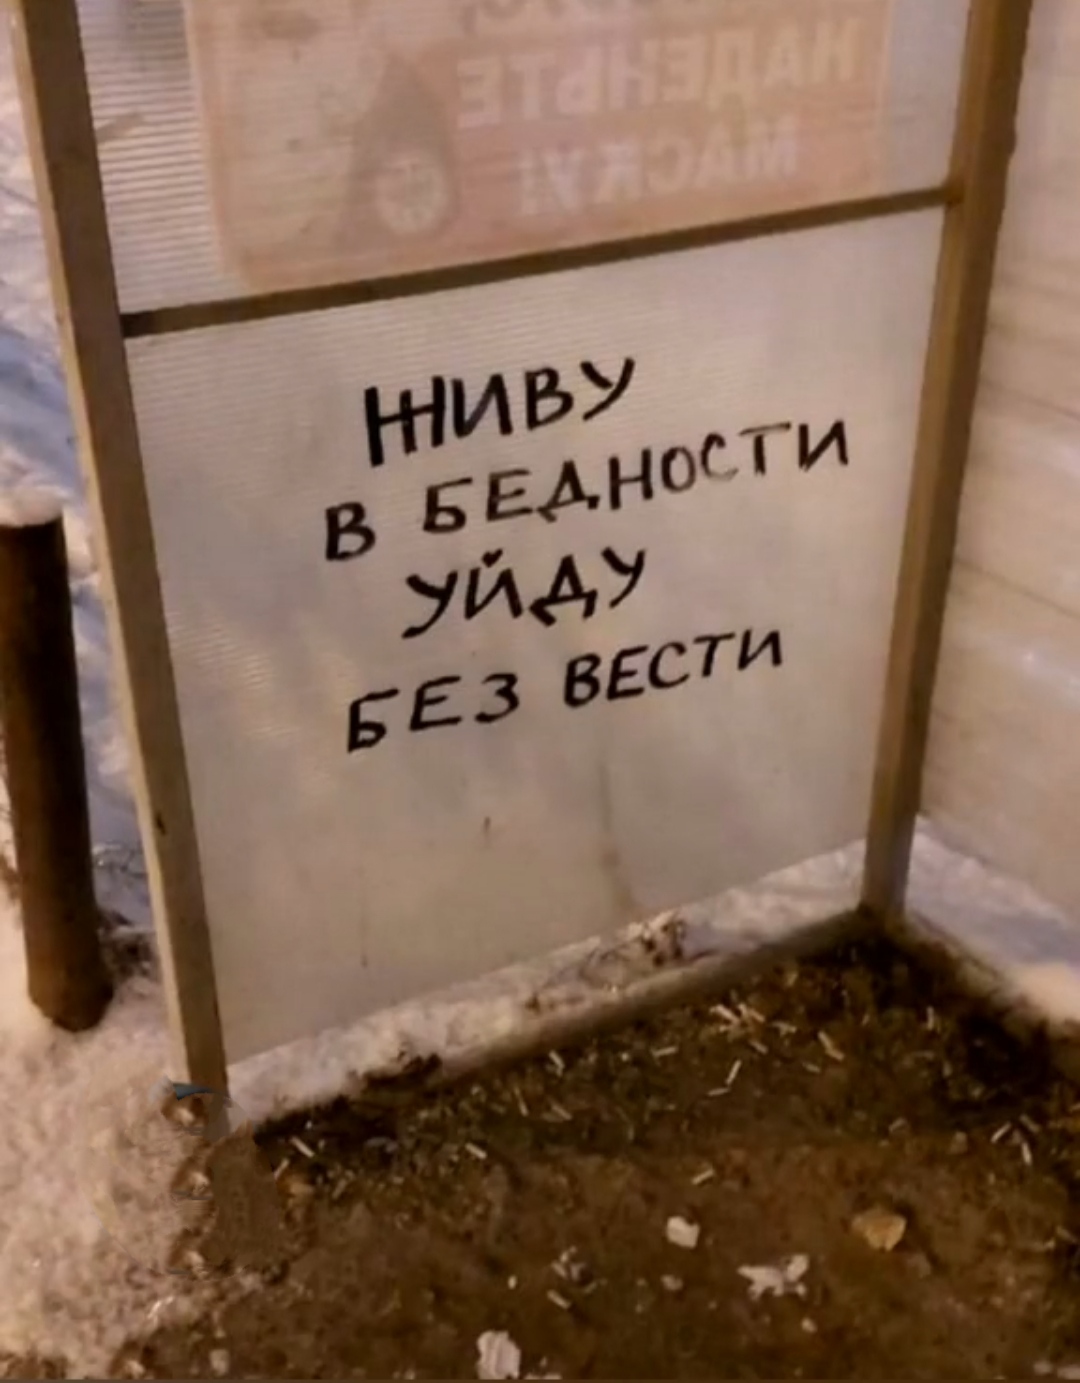 НАДЕНЬТЕ
МАСКУ!
ЖИВУ
В БЕДНОСТИ
УЙДУ
БЕЗ ВЕСТИ